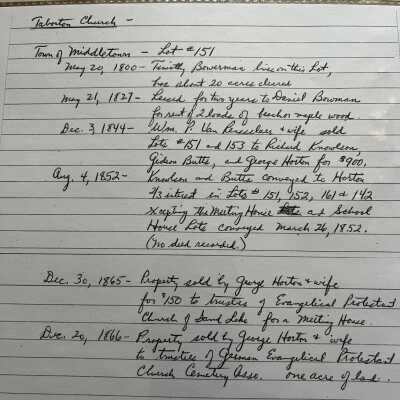 Taborton Church -
Town of Middletown - Lot #151
May 20, 1800 - Timothy Bowerman lives on this Lot,
has about 20 acres cleared
May 21, 1827 - Leased for two years to Daniel Bowman
for rent of 2 loads of beech or maple wood.
Dec. 3, 1844 - Wm. P. Van Rensselaer & wife sold
Lots #151 and 153 to Richard Knowlson,
Gideon Butts, and George Horton for $900.
Aug. 4, 1852 - Knowlson and Butts conveyed to Horton
2/3 interest in Lots # 151, 152, 161 & 142
excepting the Meeting House and School
House Lots conveyed March 26, 1852.
(no deed recorded.)
Dec. 30, 1865 - Property sold by George Horton & wife
for $150 to trustees of Evangelical Protestant
Church of Sand Lake - for a Meeting House.
Dec. 20, 1866 - Property sold by George Horton & wife
to trustees of German Evangelical Protestant
Church Cemetery Asso. one acre of land.